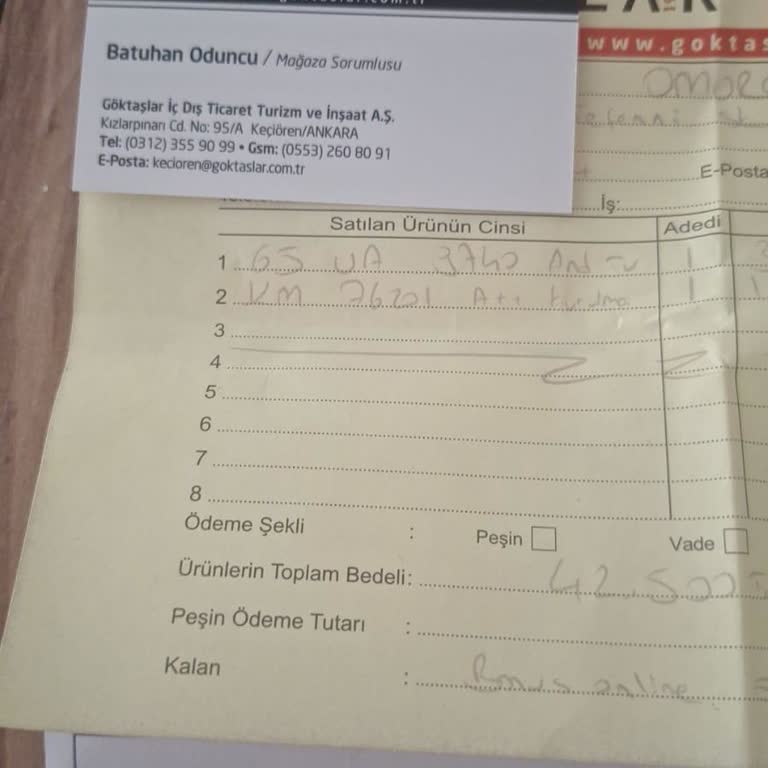 Batuhan Oduncu / Mağaza Sorumlusu
Göktaşlar İç Dış Ticaret Turizm ve İnşaat A.Ş.
Kızlarpınarı Cd. No: 95/A Keçiören/ANKARA
Tel: (0312) 355 90 99 • Gsm: (0553) 260 80 91
E-Posta: kecioren@goktaslar.com.tr
www.goktaş
E-Posta
İş:
Satılan Ürünün Cinsi Adedi
1 65 UA 3740 And TV 1
2 VM 76201 1
3
4
5
6
7
8
Ödeme Şekli : Peşin Vade
Ürünlerin Toplam Bedeli: 42.500
Peşin Ödeme Tutarı :
Kalan : Bonus online =